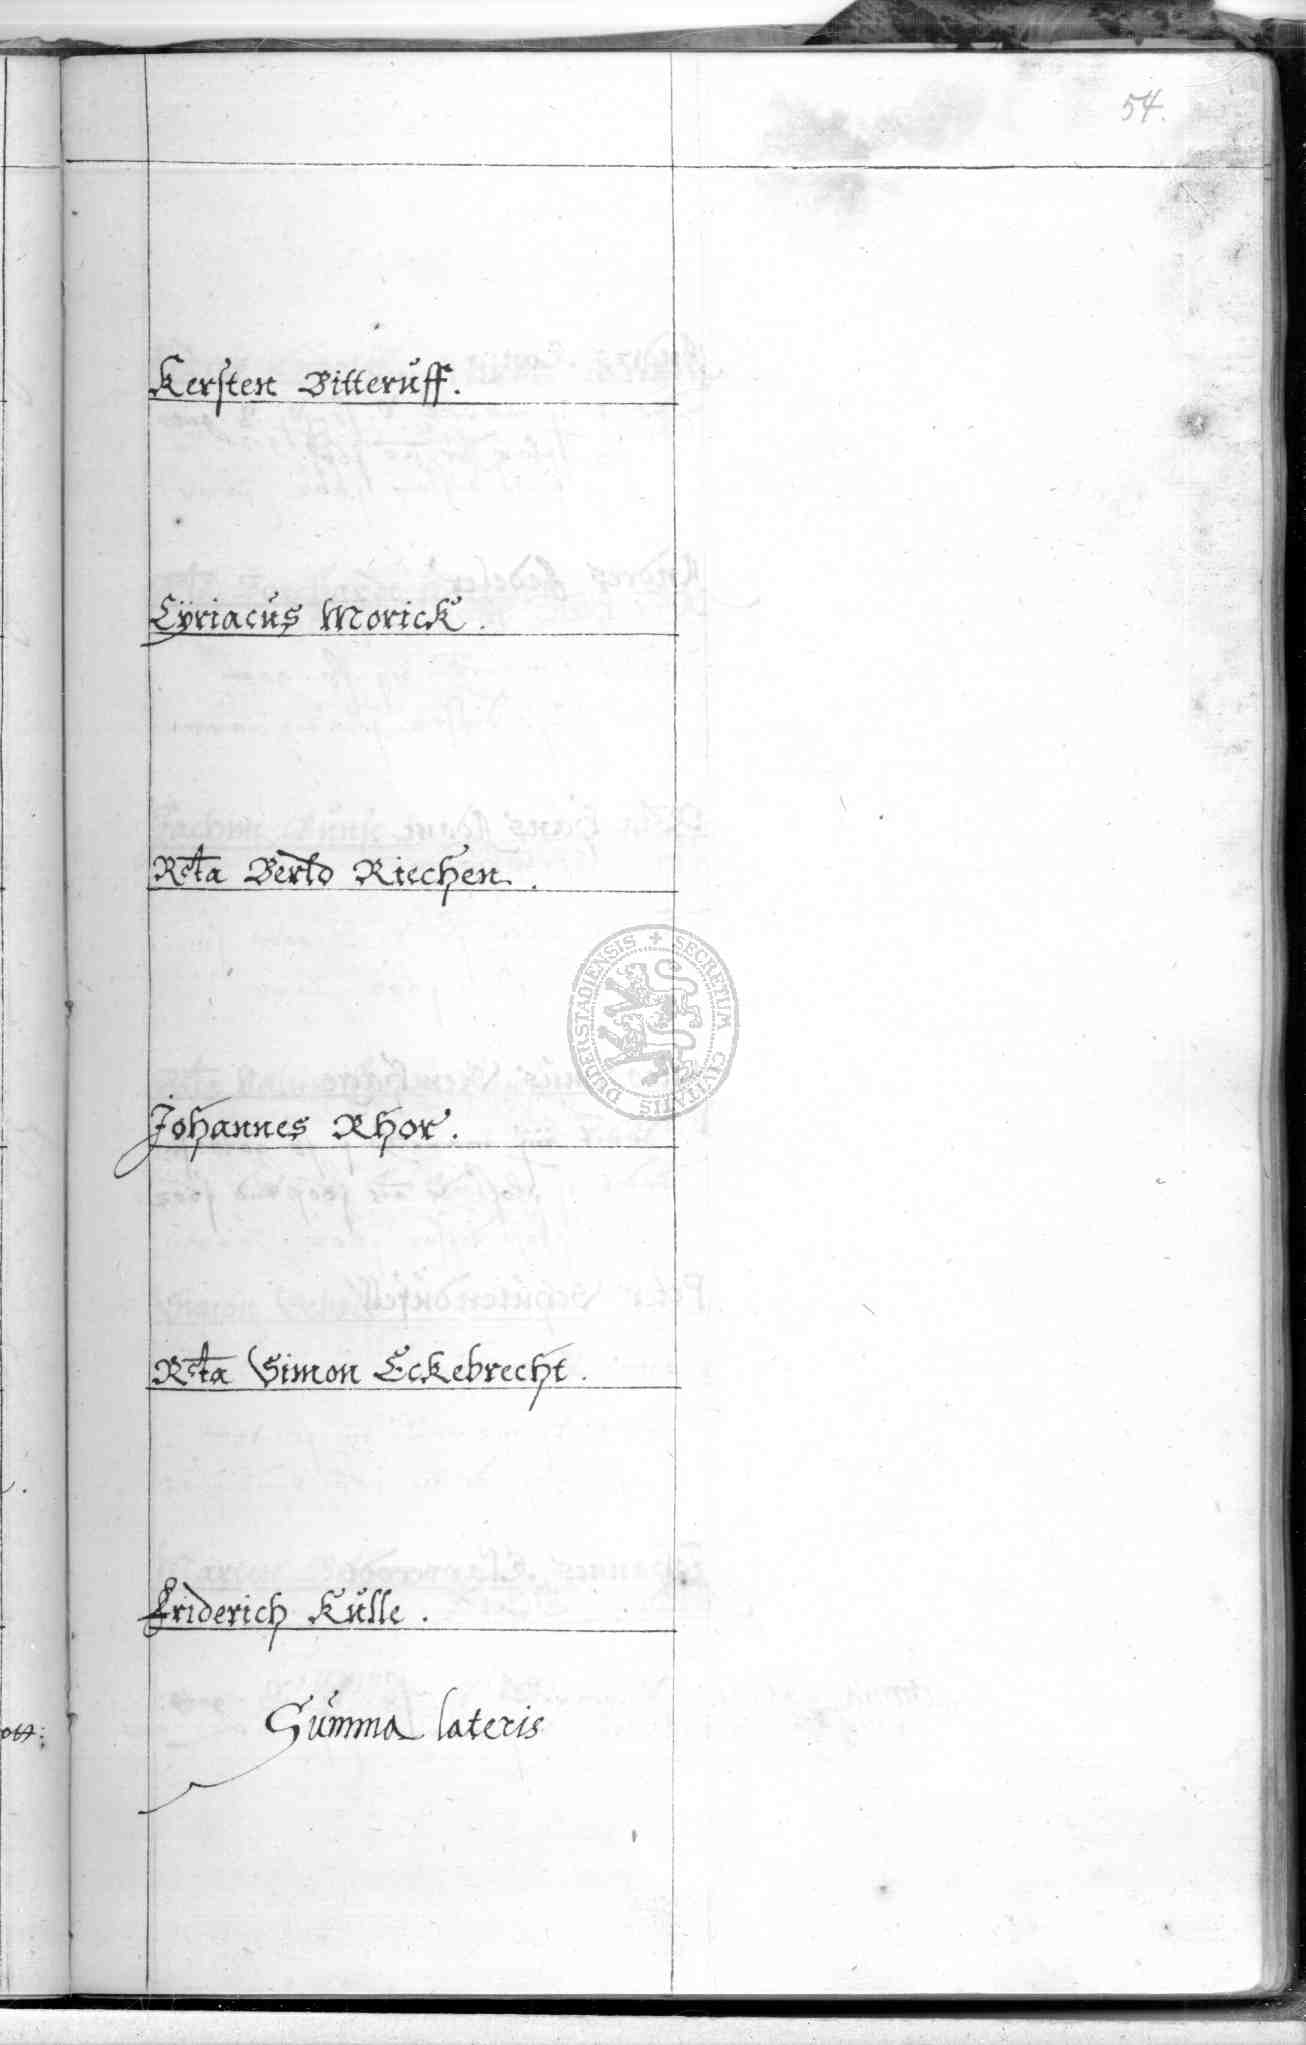 54.
Kersten Bitteruff.
Cÿriacus Morick.
Rcta Berld Riechen.
Johannes Rhor.
Rcta Simon Eckebrecht.
Friderich Külle.
Summa lateris
SECRETUM CIVITATIS DUDERSTADIENSIS